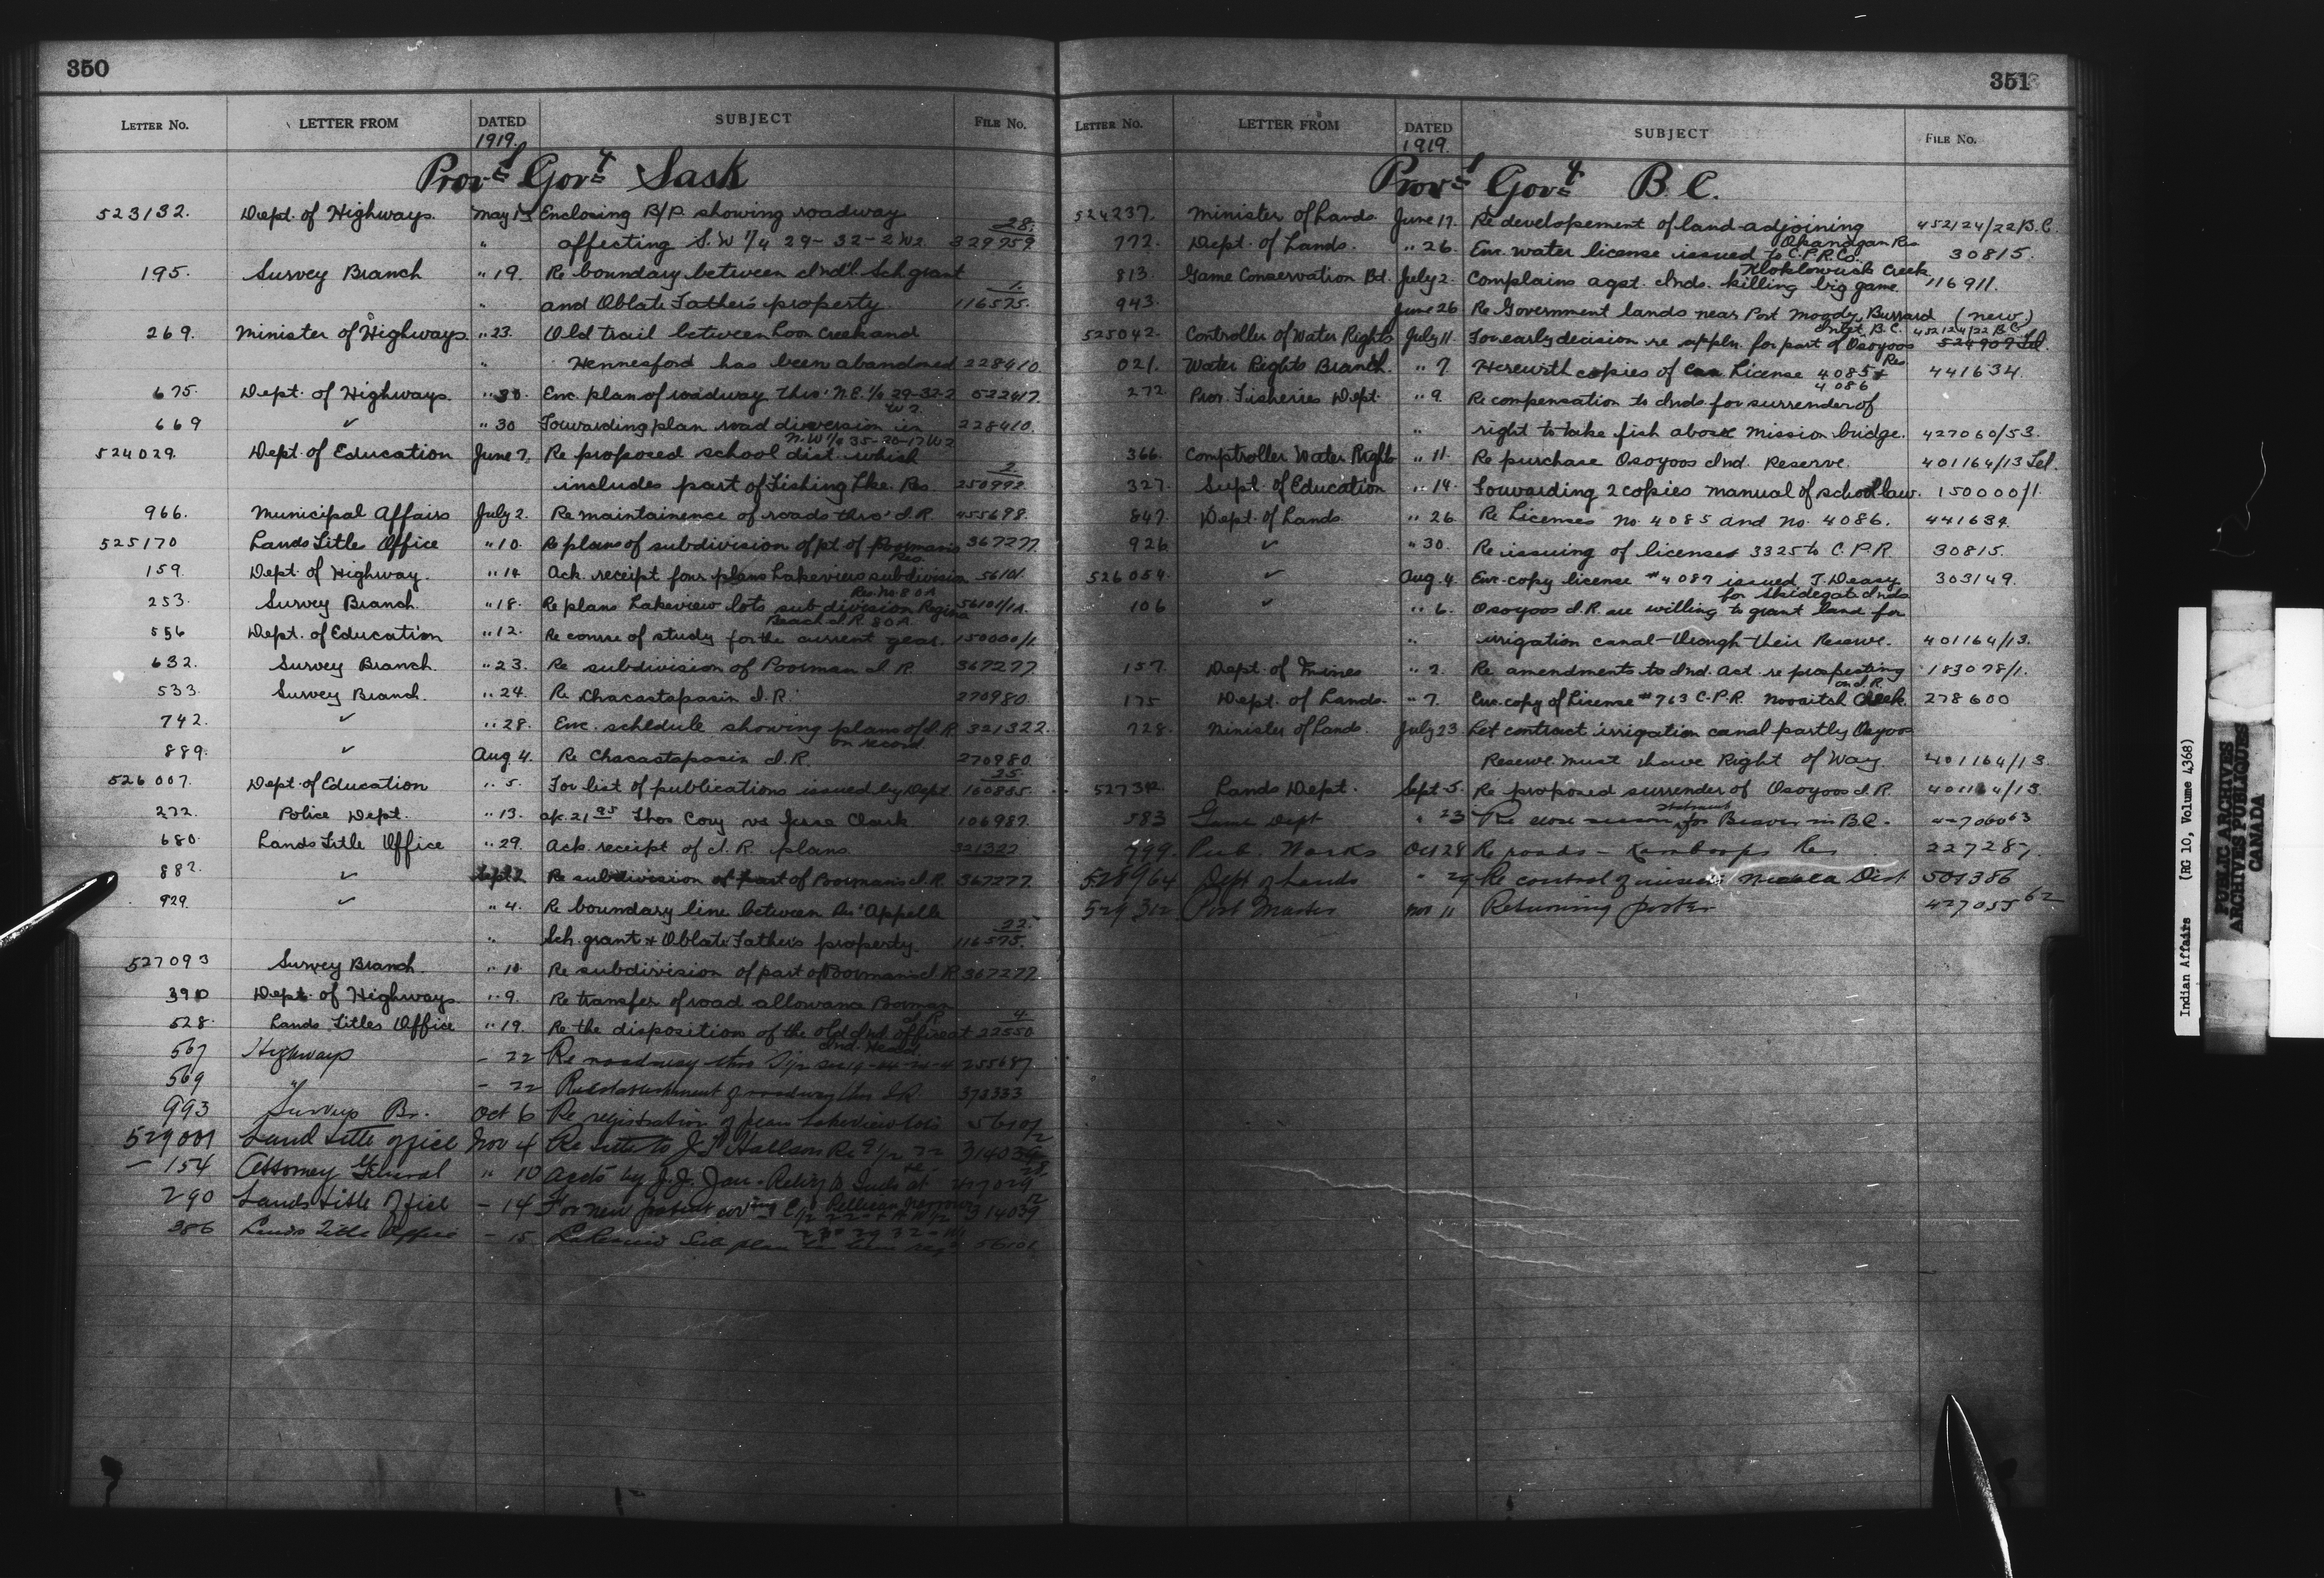 350
LETTER NO. LETTER FROM DATED SUBJECT FILE NO.
1919.
Prov'l Gov't Sask
523132. Dept. of Highways. May 13 Enclosing B/P. showing roadway 28.
" affecting S.W 1/4 29-32-2 W2 329759.
195. Survey Branch " 19. Re boundary between Ind'l. Sch. grant 1.
" and Oblate Father's property. 116575.
269. Minister of Highways. " 23. Old trail between Loon Creek and
" Hennesford has been abandoned 228410.
675. Dept. of Highways. " 30. Enc. plan of roadway thro' N.E. 1/4 29-32-2 W2. 522417.
669 ✓ " 30 Forwarding plan road diversion in N.W 1/4 35-20-17 W2 228410.
524029. Dept. of Education June 7. Re proposed school dist. which 2.
includes part of Fishing Lke. Res. 250992.
966. Municipal Affairs July 2. Re maintainence of roads thro' I.R. 455698.
525170 Lands Title Office " 10. Re plans of subdivision of pt. of Poorman's Res. 367277.
159. Dept. of Highway. " 14 Ack. receipt four plans Lakeview subdivision Res. No 80A 56101.
253. Survey Branch. " 18. Re plans Lakeview lots subdivision Regina Beach I.R. 80A. 56101/1A.
556 Dept. of Education " 12. Re course of study for the current year. 150000/1.
632. Survey Branch. " 23. Re subdivision of Poorman I.R. 367277.
533. Survey Branch. " 24. Re Chacastapasin I.R. 270980.
742. ✓ " 28. Enc. schedule showing plans of I.R. on record. 321322.
889. ✓ Aug. 4. Re Chacastapasin I.R. 270980.
526007. Dept. of Education " 5. For list of publications issued by Dept. 25. 160885.
272. Police Dept. " 13. Thos Cory vs Jesse Clark 106987.
680. Lands Title Office " 29. Ack. receipt of I.R. plans. 321322
882. ✓ Sept. 2 Re subdivision of part of Poorman's I.R. 367277.
929. ✓ " 4. Re boundary line between Qu'Appelle 22.
" Sch. grant & Oblate Father's property. 116575.
527093 Survey Branch. " 10. Re subdivision of part of Poorman's I.R. 367277.
3910 Dept. of Highways. " 9. Re transfer of road allowance Poorman I.R. 4.
528. Lands Titles Office " 19. Re the disposition of the old Ind. office at Ind. Head. 22550
567 Highways - 22 Re roadway thro 255687.
569 " - 22 Re establishment of roadway thro I.R. 373333
993 Surveys Br. Oct 6 Re registration of plan Lakeview lots 56101/2
529001 Land title office Nov 4 Re title to 314039
- 154 Attorney General " 10
290 Lands title Office - 14 For new patent covering 314039
386 Lands Title Office - 15 Lakeview Sub plan 56101
351
LETTER NO. LETTER FROM DATED SUBJECT FILE NO.
1919.
Prov'l Gov't B.C.
524237. Minister of Lands. June 17. Re developement of land adjoining Okanagan Res. 452124/22 B.C.
772. Dept. of Lands. " 26. Enc. water license issued to C.P.R. Co. Kloklowuck Creek 30815.
813. Game Conservation Bd. July 2. Complains agst. Inds. killing big game. 116911.
943. June 26 Re Government lands near Port Moody, Burrard Inlet, B.C. (new) 452124/22 B.C.
525042. Controller of Water Rights July 11. For early decision re appln. for part of Osoyoos Res 524909 Tel.
021. Water Rights Branch. " 7. Herewith copies of Con. License 4085 & 4086 441634.
272. Prov. Fisheries Dept. " 9. Re compensation to Inds. for surrender of
" right to take fish above Mission bridge. 427060/53.
366. Comptroller Water Rights " 11. Re purchase Osoyoos Ind. Reserve. 401164/13 Tel.
327. Supt. of Education " 14. Forwarding 2 copies manual of school law. 150000/1.
847. Dept. of Lands " 26 Re Licenses No. 4085 and No. 4086. 441634.
926. ✓ " 30. Re issuing of licenses 3325 to C.P.R. 30815.
526054. ✓ Aug. 4. Enc. copy license #4087 issued T. Deasy for Skidegate Inds 303149.
106 ✓ " 6. Osoyoos I.R. are willing to grant land for
" irrigation canal through their Reserve. 401164/13.
157. Dept. of Mines " 2. Re amendments to Ind. Act. re prospecting on I.R. 183078/1.
175 Dept. of Lands. " 7. Enc. copy of License #763 C.P.R. Novaitch Creek. 278600
728. Minister of Lands. July 23 Let contract irrigation canal partly Osoyoos
Reserve. Must have Right of Way. 401164/13.
527312. Lands Dept. Sept. 5. Re proposed surrender of Osoyoos I.R. 401164/13.
583 Game Dept " 23 Re close season for Beaver in B.C. 427060 63
999. Pub. Works Oct 28 Re roads - Kamloops Res 227287.
528964 Dept of Lands " 29 Re control of Nicola Dist 501386
529312 Post Master Nov 11 Returning poster 427055 62
Indian Affairs (RG 10, Volume 4368)
PUBLIC ARCHIVES
ARCHIVES PUBLIQUES
CANADA